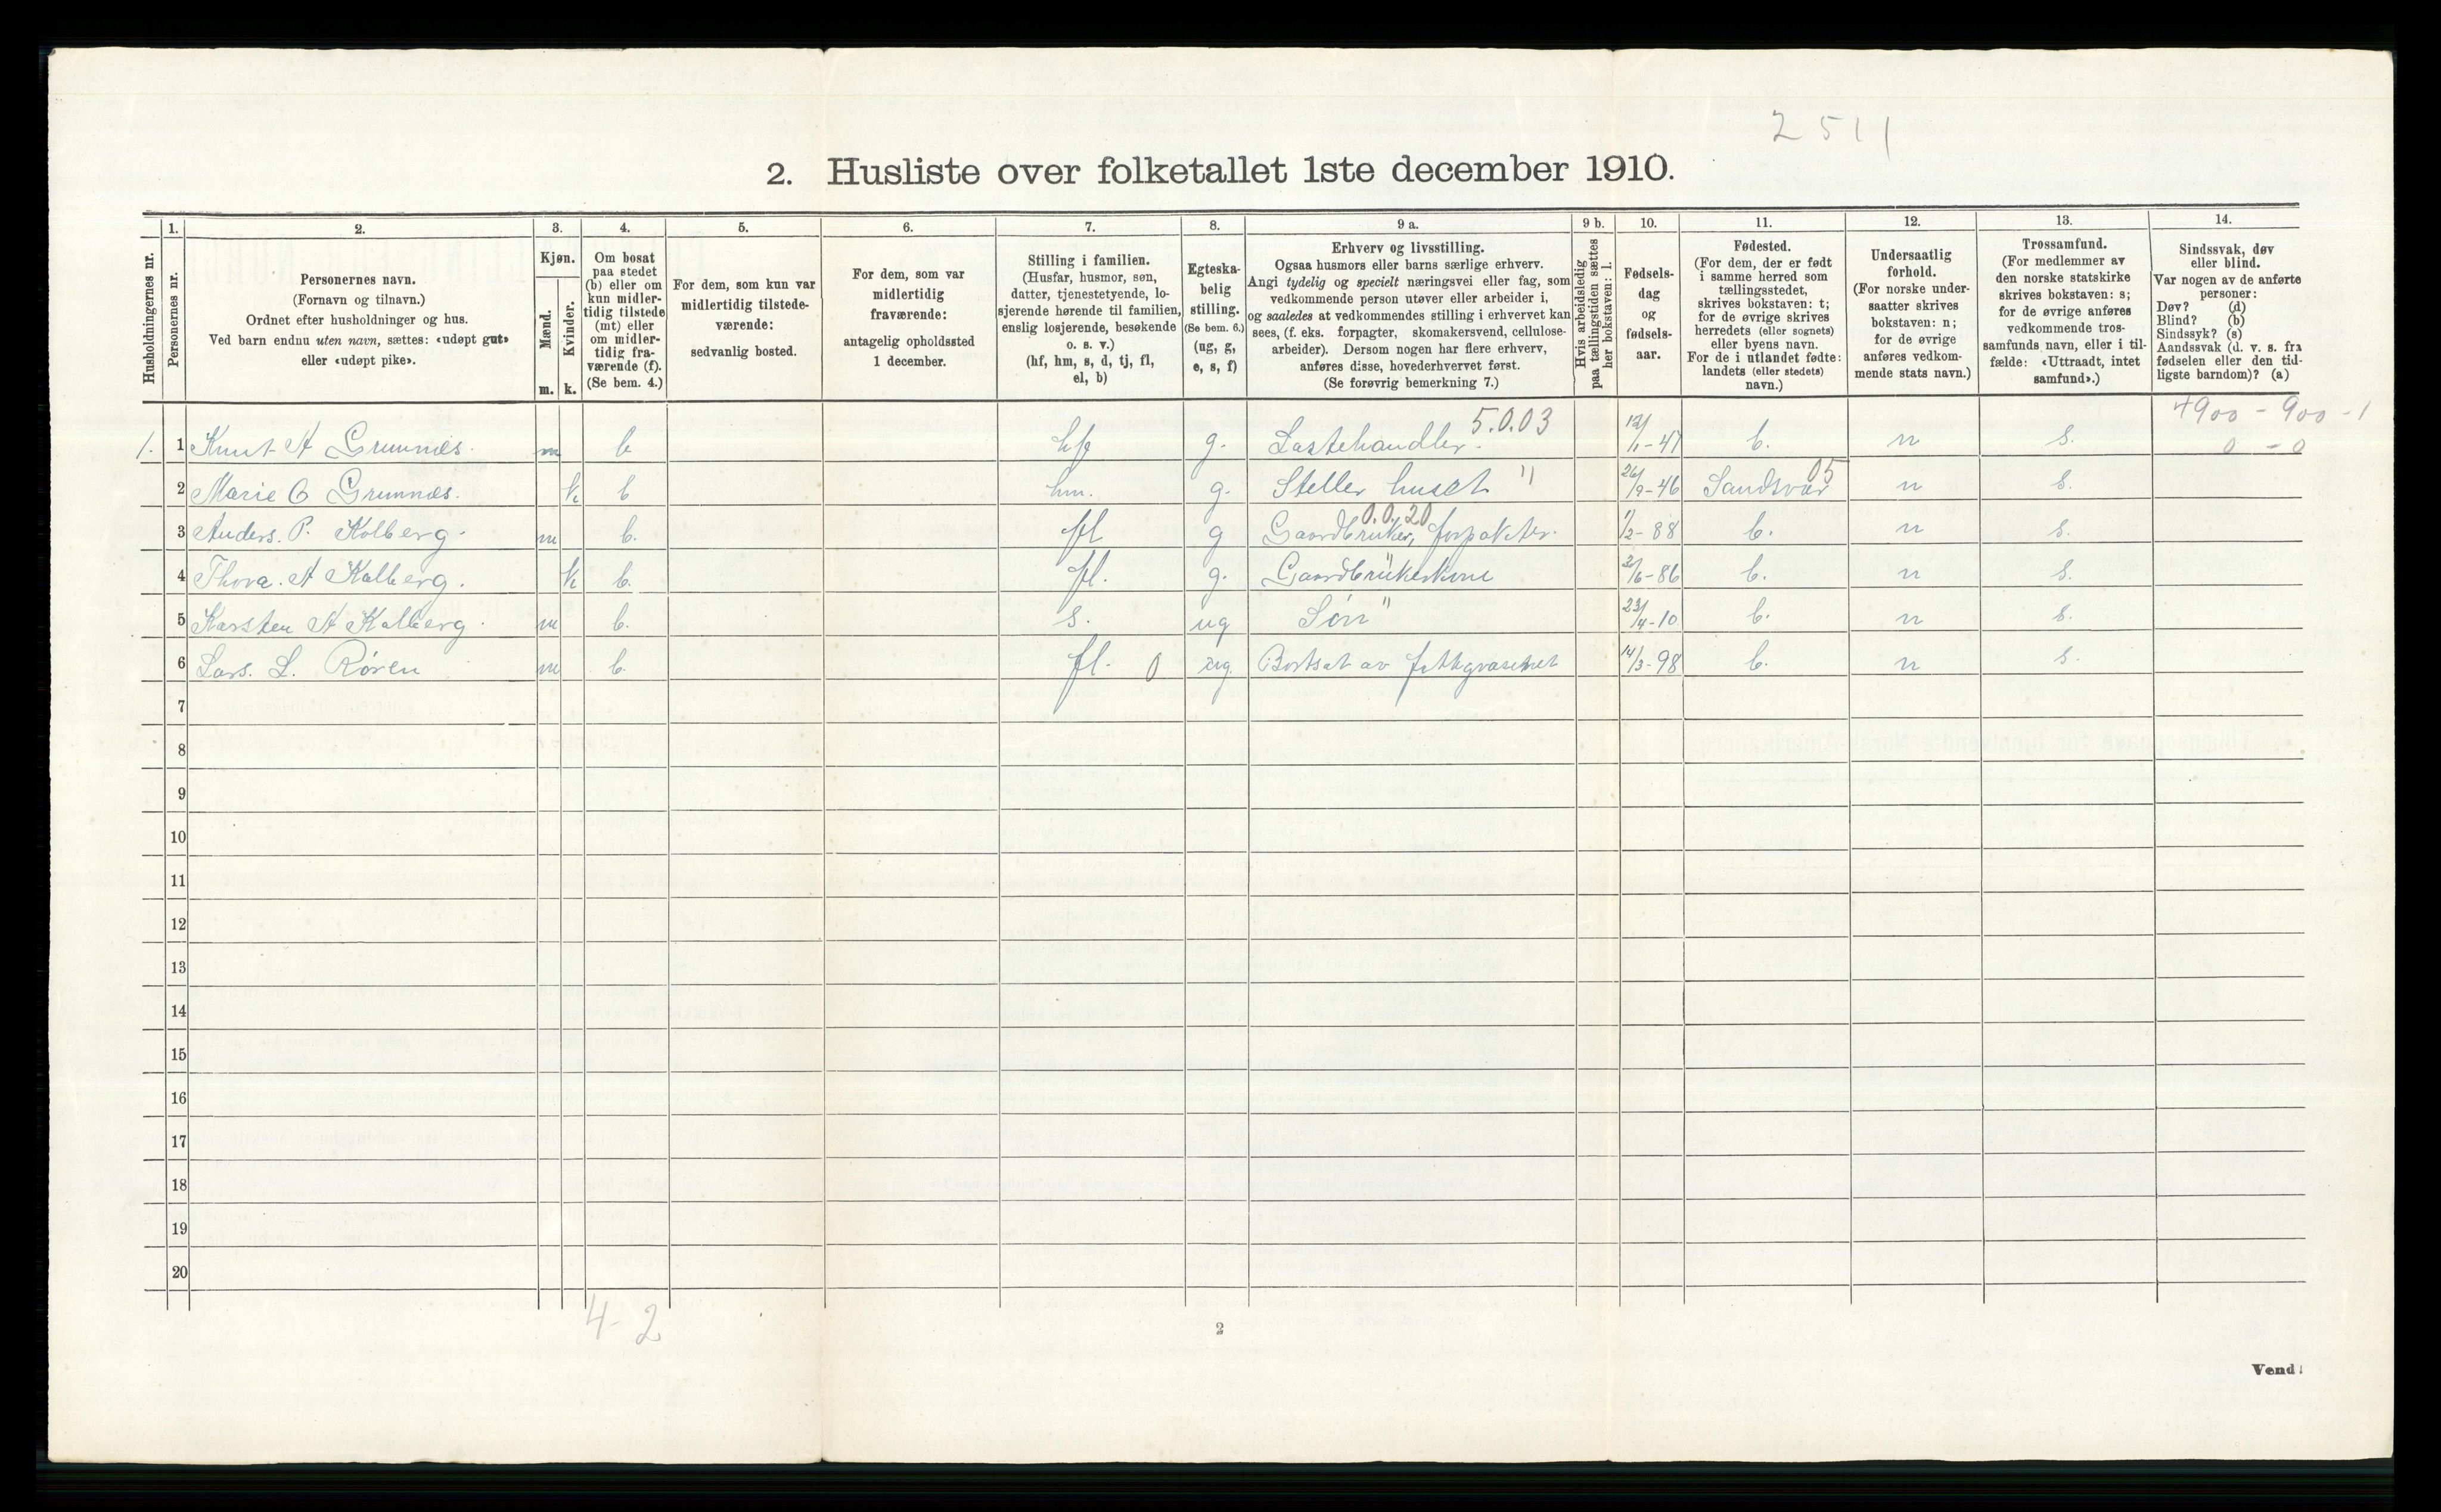 2511
2. Husliste over folketallet 1ste december 1910.
Husholdningernes nr.
1.
Personernes nr.
2.
Personernes navn.
(Fornavn og tilnavn.)
Ordnet efter husholdninger og hus.
Ved barn endnu uten navn, sættes: «udøpt gut»
eller «udøpt pike».
3.
Kjøn.
Mænd.
Kvinder.
m. k.
4.
Om bosat
paa stedet
(b) eller om
kun midler-
tidig tilstede
(mt) eller
om midler-
tidig fra-
værende (f).
(Se bem. 4.)
5.
For dem, som kun var
midlertidig tilstede-
værende:
sedvanlig bosted.
6.
For dem, som var
midlertidig
fraværende:
antagelig opholdssted
1 december.
7.
Stilling i familien.
(Husfar, husmor, søn,
datter, tjenestetyende, lo-
sjerende hørende til familien,
enslig losjerende, besøkende
o. s. v.)
(hf, hm, s, d, tj, fl,
el, b)
8.
Egteska-
belig
stilling.
(Se bem. 6.)
(ug, g,
e, s, f)
9 a.
Erhverv og livsstilling.
Ogsaa husmors eller barns særlige erhverv.
Angi tydelig og specielt næringsvei eller fag, som
vedkommende person utøver eller arbeider i,
og saaledes at vedkommendes stilling i erhvervet kan
sees, (f. eks. forpagter, skomakersvend, cellulose-
arbeider). Dersom nogen har flere erhverv,
anføres disse, hovederhvervet først.
(Se forøvrig bemerkning 7.)
9 b.
Hvis arbeidsledig
paa tællingstiden sættes
her bokstaven: l.
10.
Fødsels-
dag
og
fødsels-
aar.
11.
Fødested.
(For dem, der er født
i samme herred som
tællingsstedet,
skrives bokstaven: t;
for de øvrige skrives
herredets (eller sognets)
eller byens navn.
For de i utlandet fødte:
landets (eller stedets)
navn.)
12.
Undersaatlig
forhold.
(For norske under-
saatter skrives
bokstaven: n;
for de øvrige
anføres vedkom-
mende stats navn.)
13.
Trossamfund.
(For medlemmer av
den norske statskirke
skrives bokstaven: s;
for de øvrige anføres
vedkommende tros-
samfunds navn, eller i til-
fælde: «Uttraadt, intet
samfund».)
14.
Sindssvak, døv
eller blind.
Var nogen av de anførte
personer:
Døv? (d)
Blind? (b)
Sindssyk? (s)
Aandssvak (d. v. s. fra
fødselen eller den tid-
ligste barndom)? (a)
5.0.03 4900 - 900 - 1
1. 1 Knut A Grumnæs. m b hf g. Lastehandler. 12/1-47 t. n s. 0 - 0
2 Marie O Grumnæs. k b hm. g. Steller huset " 26/9-46 Sandsvær 05 n s.
0.0.20
3 Anders. P. Kolberg. m b. fl g Gaardbruker, forpakter. 1/2-88 t. n s.
4 Thora. A Kolberg. k b. fl. g. Gaardbrükerkone 3/6-86 t. n s.
5 Karsten A Kolberg. m b. s. ug Søn " 23/4-10 t. n s.
6 Lars. L. Røren m b. fl. 0 ug. Bortsat av fattigvæsenet 14/3-98 t. n s.
7
8
9
10
11
12
13
14
15
16
17
18
19
20
4-2
2
Vend!